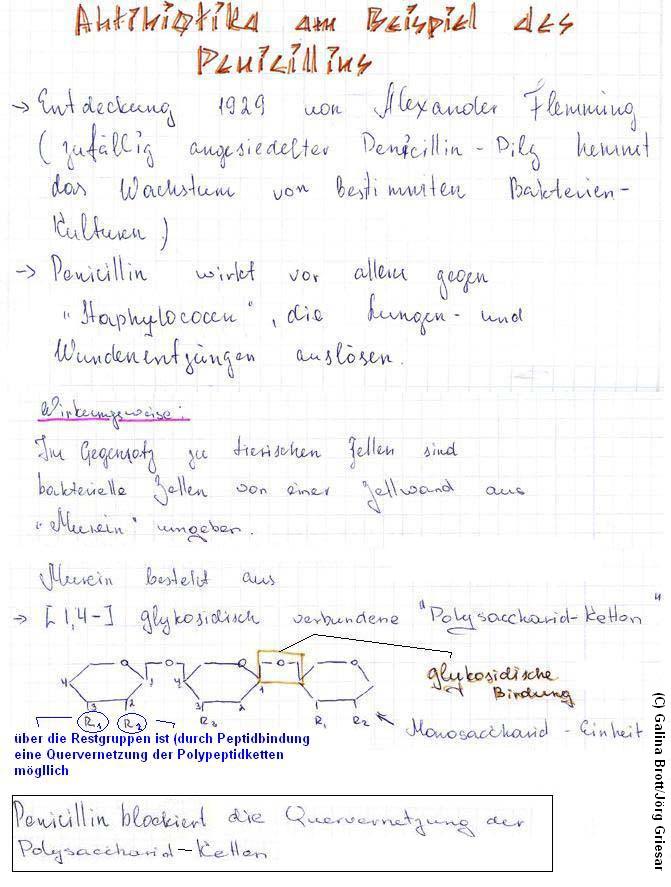 Antibiotika am Beispiel des
Penicillins
→ Entdeckung 1929 von Alexander Flemming
(zufällig angesiedelter Penicillin-Pilz hemmt
das Wachstum von bestimmten Bakterien-
kulturen)
→ Penicillin wirkt vor allem gegen
"Staphylococcen", die Lungen- und
Wundenentzüngen auslösen.
Wirkungsweise:
Im Gegensatz zu tierischen Zellen sind
bakterielle Zellen von einer Zellwand aus
"Murein" umgeben.
Murein besteht aus
→ [1,4-] glykosidisch verbundene "Polysaccharid-Ketten"
O O O O O
glykosidische
Bindung
4 1 4 1
3 2 3 2
R1 R2 R3 R1 R2
Monosaccharid-Einheit
über die Restgruppen ist (durch Peptidbindung
eine Quervernetzung der Polypeptidketten
mögllich
Penicillin blockiert die Quervernetzung der
Polysaccharid-Ketten
(C) Galina Brott/Jörg Griesar